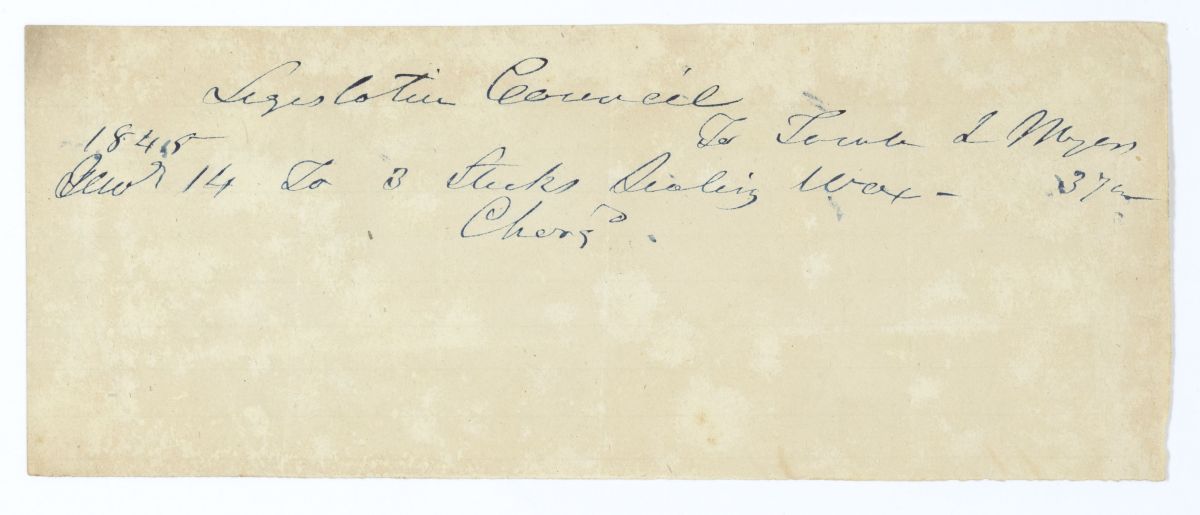 Legislative Council
To Towle & Myers
1845
Novr 14 To 3 Sticks Sealing Wax - 37
Chargd